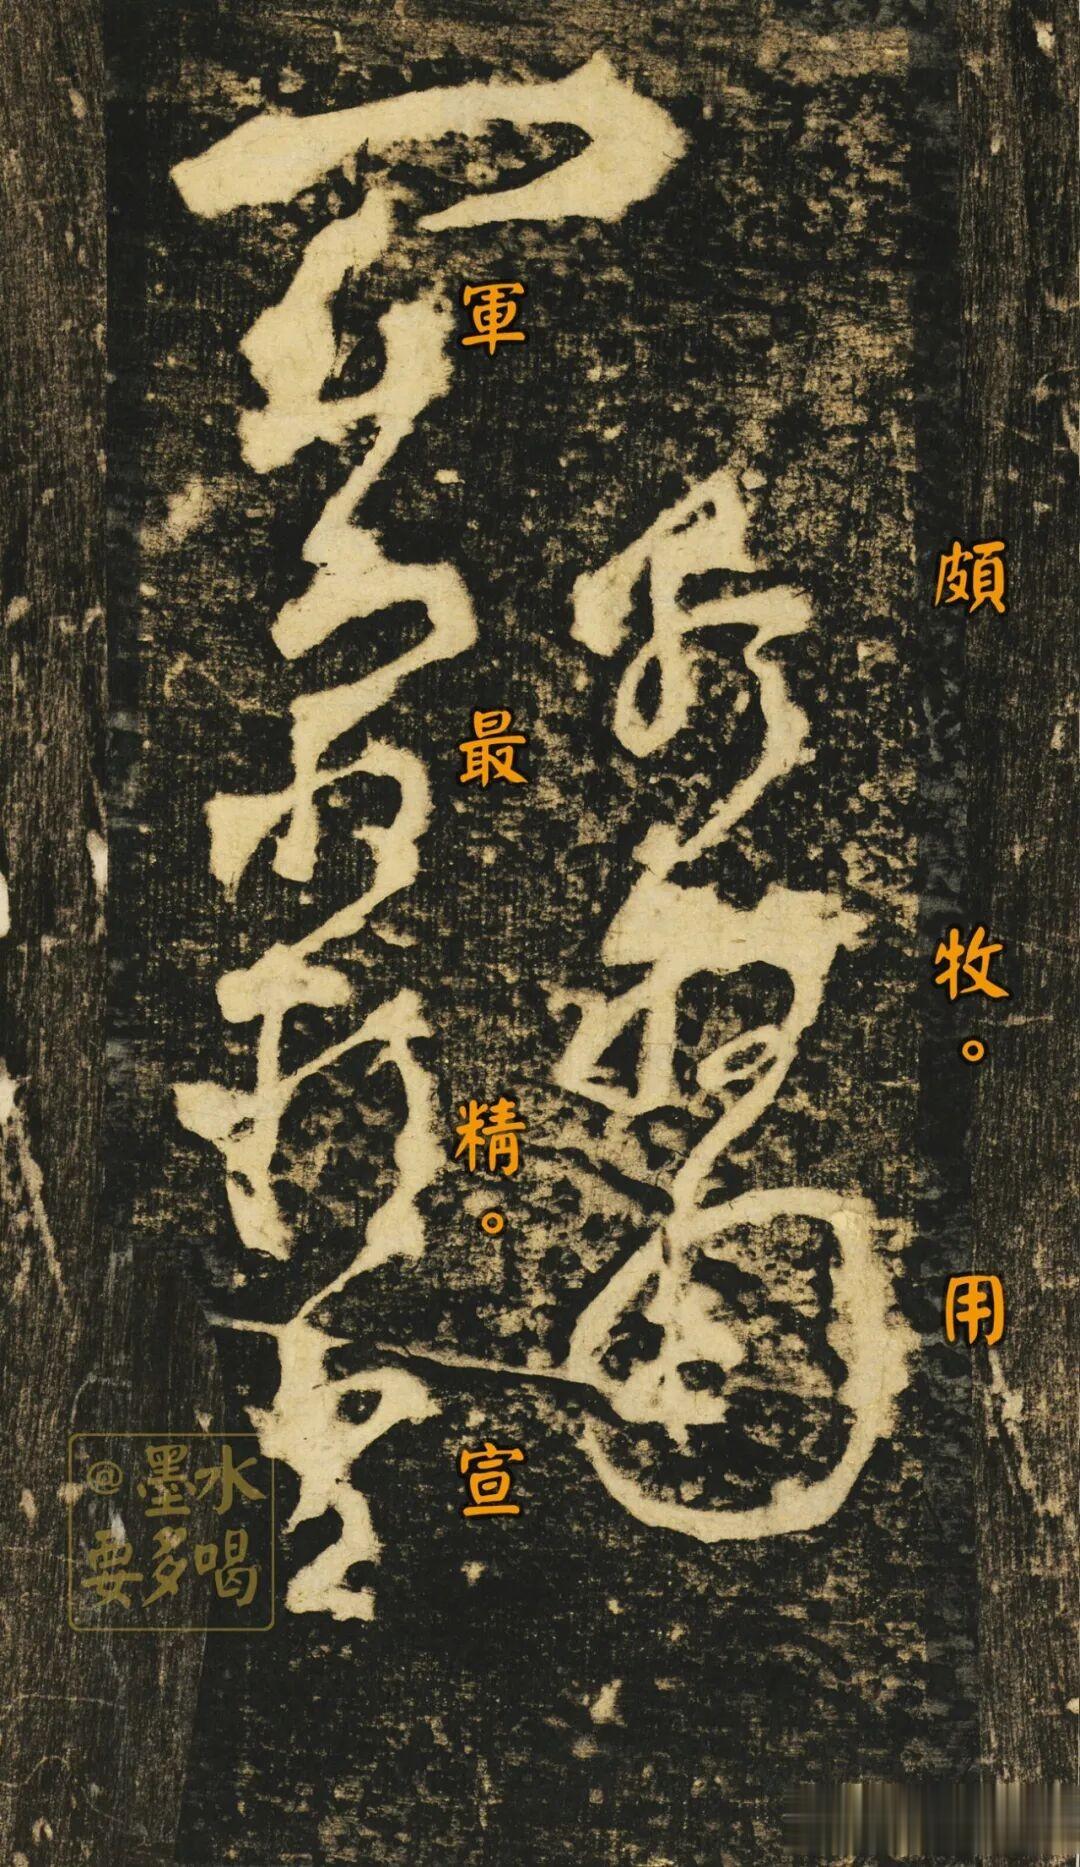 頗牧。用
軍最精。宣
@墨水
要多喝